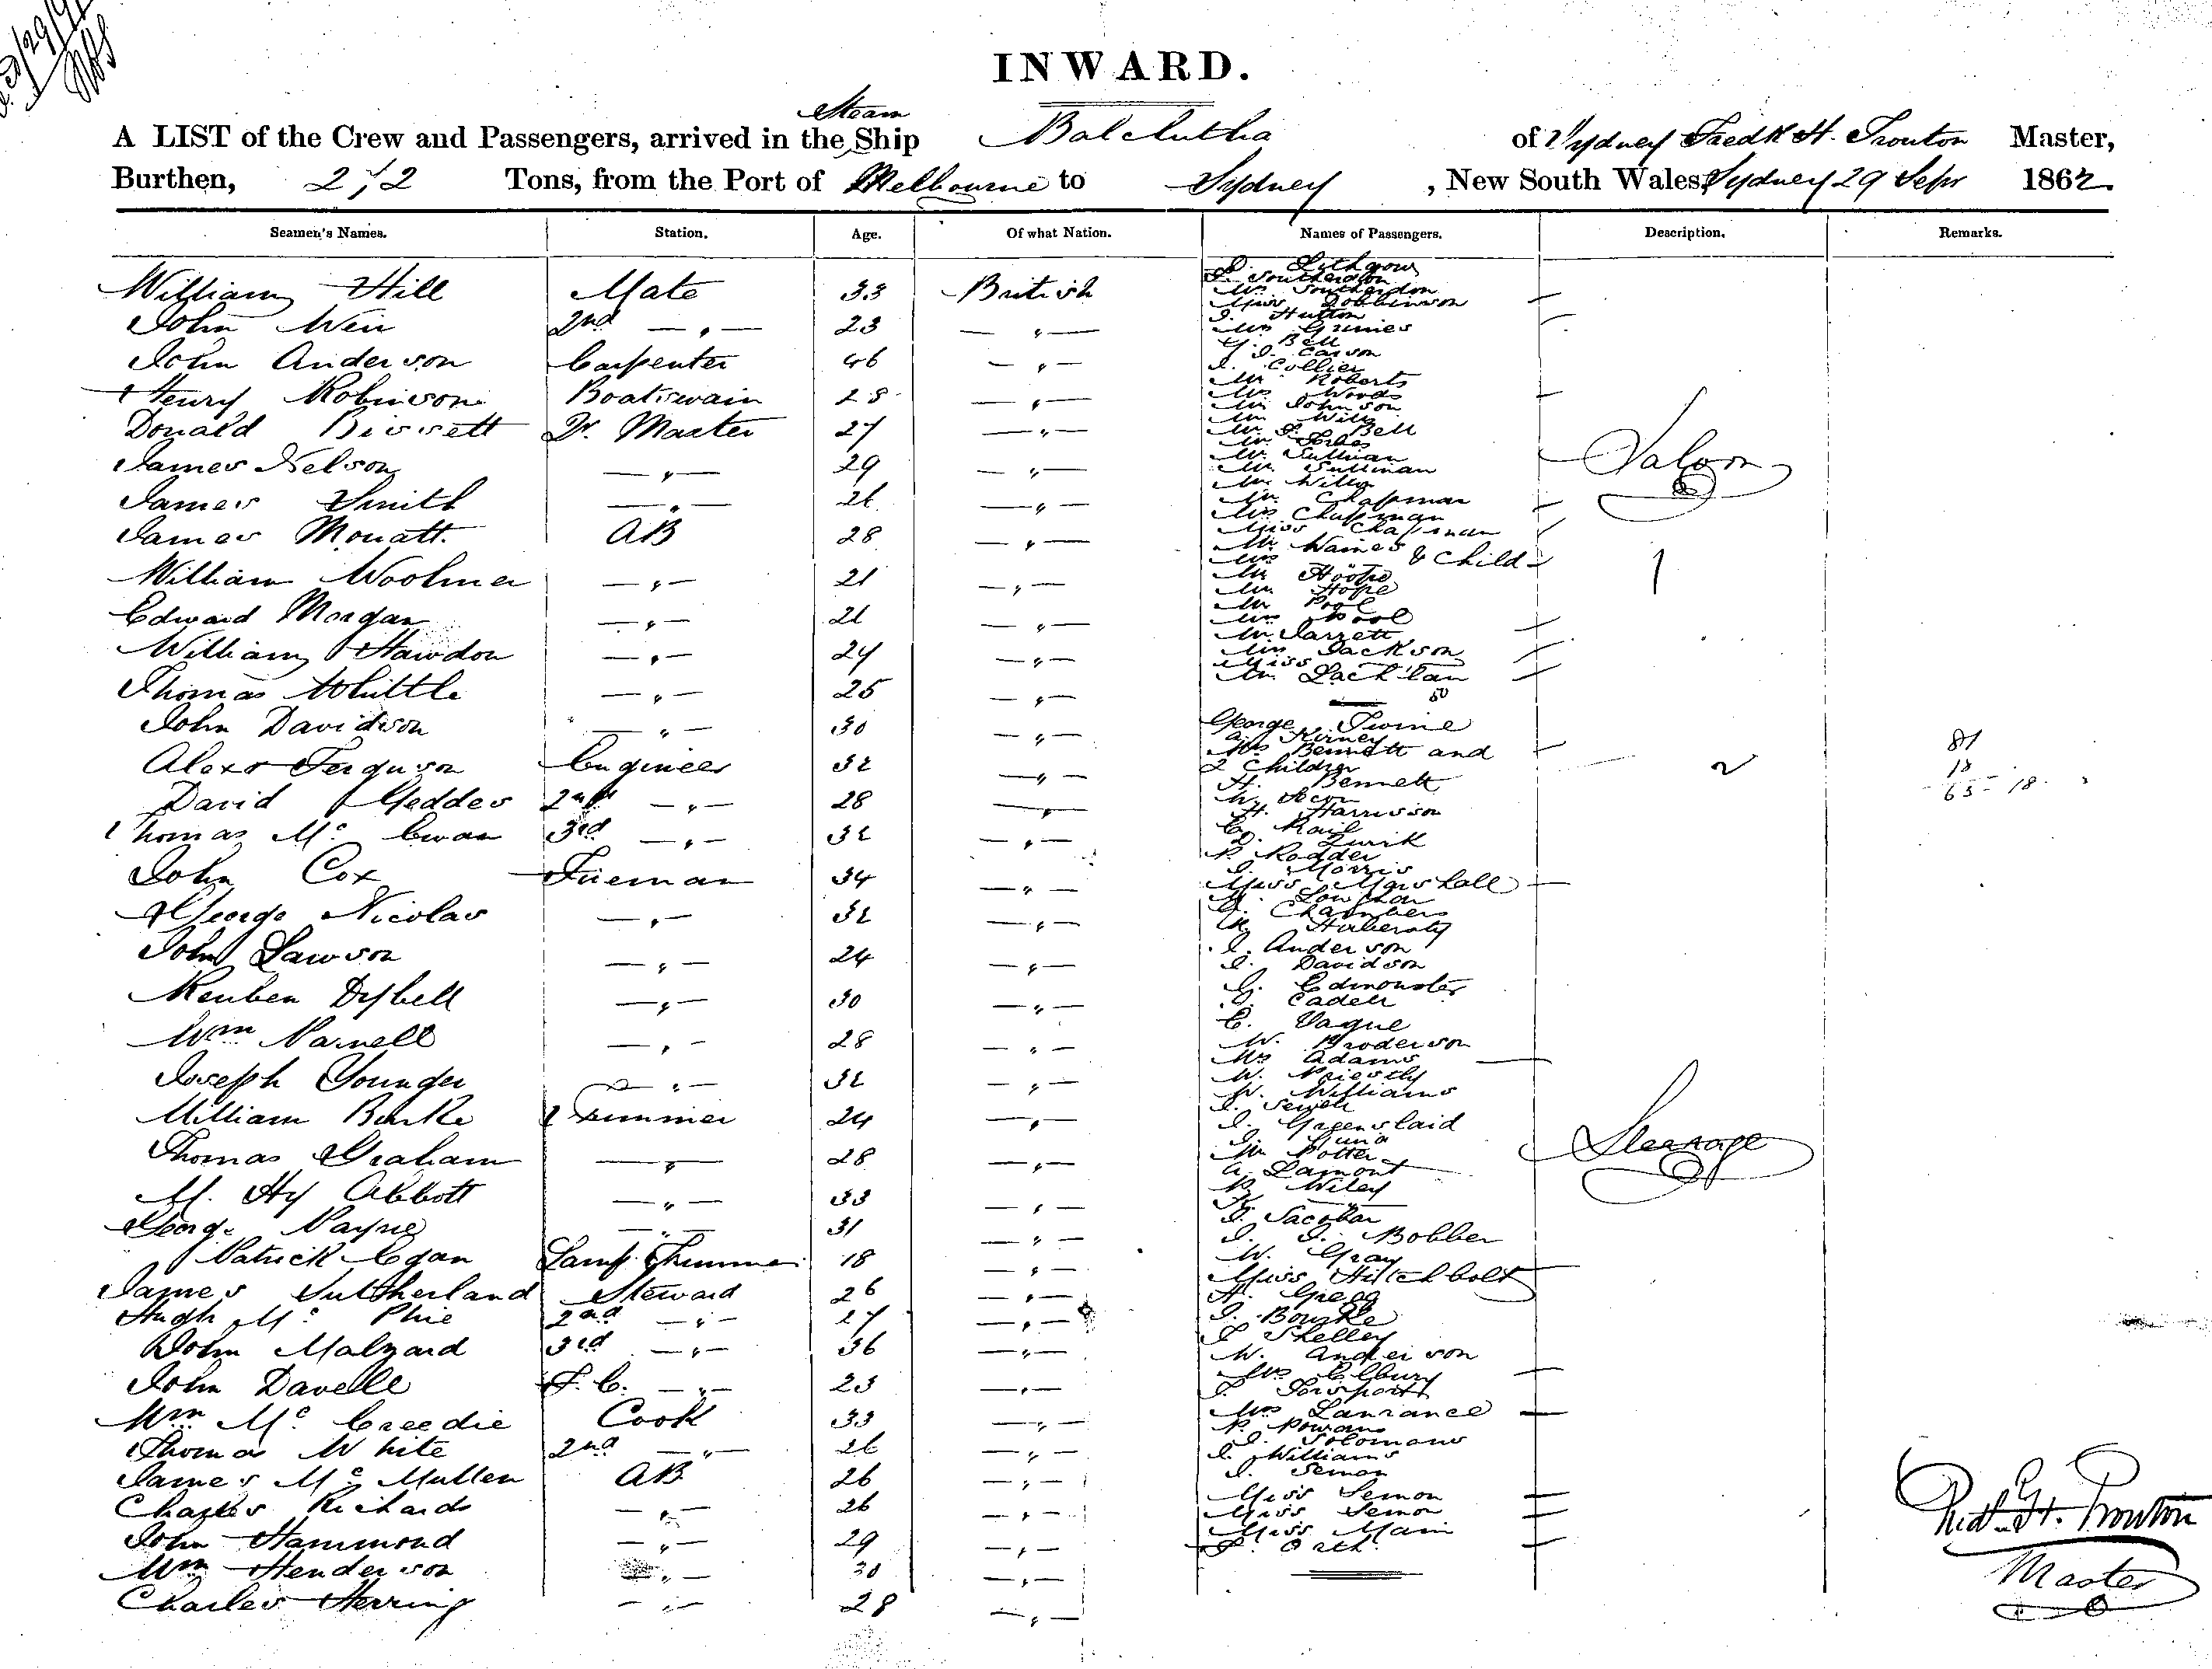 INWARD.
Steam
A LIST of the Crew and Passengers, arrived in the Ship Balclutha of Sydney Fredk H. Trouton Master,
Burthen, 272 Tons, from the Port of Melbourne to Sydney, New South Wales, Sydney 29 Sepr 1862.
Seamen's Names. Station. Age. Of what Nation. Names of Passengers. Description. Remarks.
William Hill Mate 33 British
John Weir 2nd — " — 23 — " —
John Anderson Carpenter 46 — " —
Henry Robinson Boatswain 28 — " —
Donald Bissett Qr. Master 27 — " —
James Nelson — " — 29 — " —
James Smith — " — 26 — " —
James Mouatt. AB 28 — " —
William Woolmer — " — 21 — " —
Edward Morgan — " — 26 — " —
William Hawdon — " — 24 — " —
Thomas Whittle — " — 25 — " —
John Davidson — " — 30 — " —
Alexr Ferguson Engineer 32 — " —
David Geddes 2nd — " — 28 — " —
Thomas Mc Ewan 3rd — " — 32 — " —
John Cox Fireman 34 — " —
George Nicolas — " — 32 — " —
John Lawson — " — 24 — " —
Reuben Dybell — " — 30 — " —
Wm Parnell — " — 28 — " —
Joseph Younger — " — 32 — " —
William Burke Trimmer 24 — " —
Thomas Graham — " — 28 — " —
M. Hy Abbott — " — 33 — " —
George Payne — " — 31 — " —
Patrick Egan Lamp Trimmer 18 — " —
James Sutherland Steward 26 — " —
Hugh Mc Phie 2nd — " — 27 — " —
John Malzard 3rd — " — 36 — " —
John Davell F. C. — " — 23 — " —
Wm Mc Creedie Cook 33 — " —
Thomas White 2nd — " — 26 — " —
James Mc Mullen AB 26 — " —
Charles Richards — " — 26 — " —
John Hammond — " — 29 — " —
Wm Henderson — " — 30 — " —
Charles Herring — " — 28 — " —
Lithgow
Southerdon
Mrs Southerdon
Miss Robbinson
J. Hutton
Mrs Grimes
G. Bell
J. Carson
J. Collier
Mr Roberts
Mrs Woods
Mr Johnson
Mr Wills
Mr J. Bell
Mr
Mr Sullivan
Mr Sullivan
Mr Wills
Mr Chapman
Mrs Chapman
Miss Chapman
Mr Haines
Mrs " & Child
Mr
Mr Hope
Mr Pool
Mrs Pool
Mr Jarrett
Mrs Jackson
Miss "
Mr Lachlan
Saloon
1
George Twine
Mrs Bennett and
2 Children
H. Bennett
W.
H. Harrison
Rail
Quirk
P. Rodder
J. Morris
Miss Marshall
Chambers
J. Anderson
J. Davidson
G. Edmonster
Cadell
C. Vague
W. Broderson
Mrs Adams
W. Priestly
W. Williams
J. Sewell
J.
J.
Mr Potter
A. Lamont
P. Wiley
J. J. Bobber
W. Gray
Miss Hitchbolt
H. Gregg
J. Bourke
Shelley
W. Anderson
Mrs Elbury
Mrs Lanrance
J. Solomons
J. Williams
J. Semon
Miss Semon
Miss Semon
Miss Main
Steerage
2
81
18
65 - 18
Fredk H. Trouton
Master